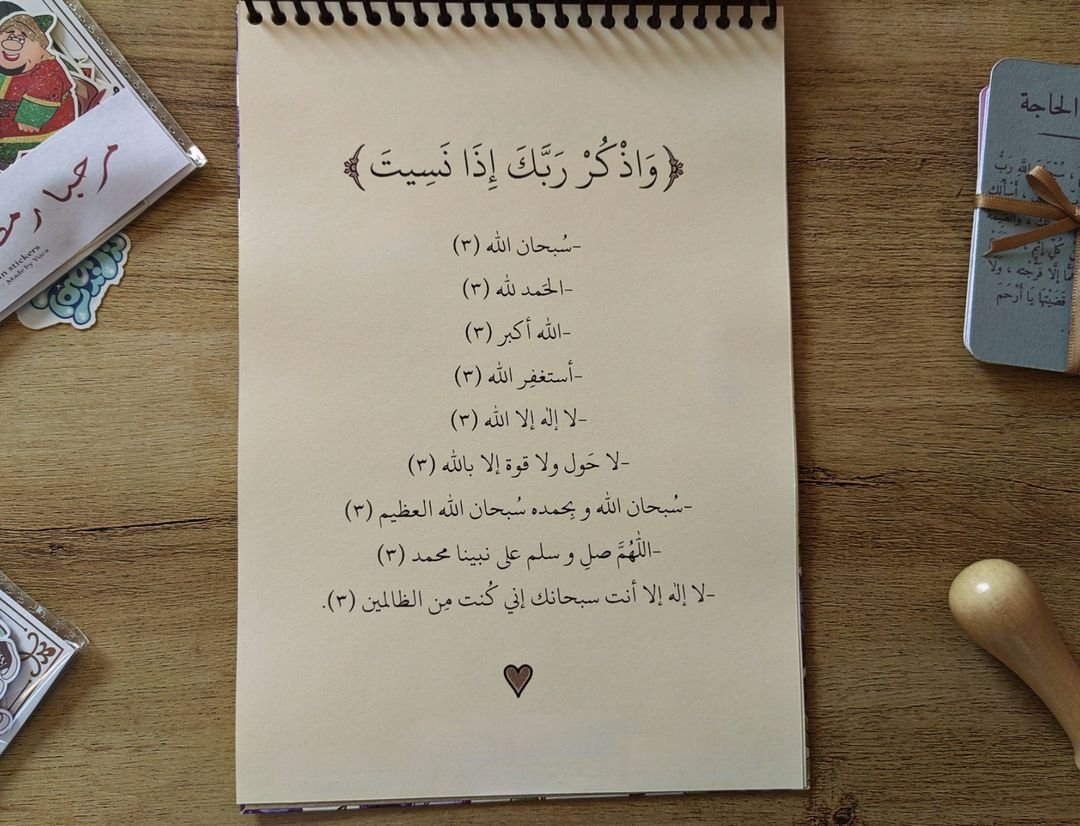 ﴿وَاذْكُرْ رَبَّكَ إِذَا نَسِيتَ﴾
-سُبحان الله (٣)
-الحَمد لله (٣)
-الله أكبر (٣)
-أستغفِر الله (٣)
-لا إله إلا الله (٣)
-لا حَول ولا قوة إلا بالله (٣)
-سُبحان الله و بِحمده سُبحان الله العظيم (٣)
-اللَّهُمَّ صلِ و سلم على نبينا محمد (٣)
-لا إله إلا أنت سبحانك إني كُنت مِن الظالمين (٣).
مرحبا
stickers
Made by Yuca
الحاجة
الله رَبُّ
أَسْأَلُكَ
كُلِّ إِثْمٍ
إِلَّا فَرَّجْتَهُ ، وَلَا
قَضَيْتَهَا يَا أَرْحَمَ